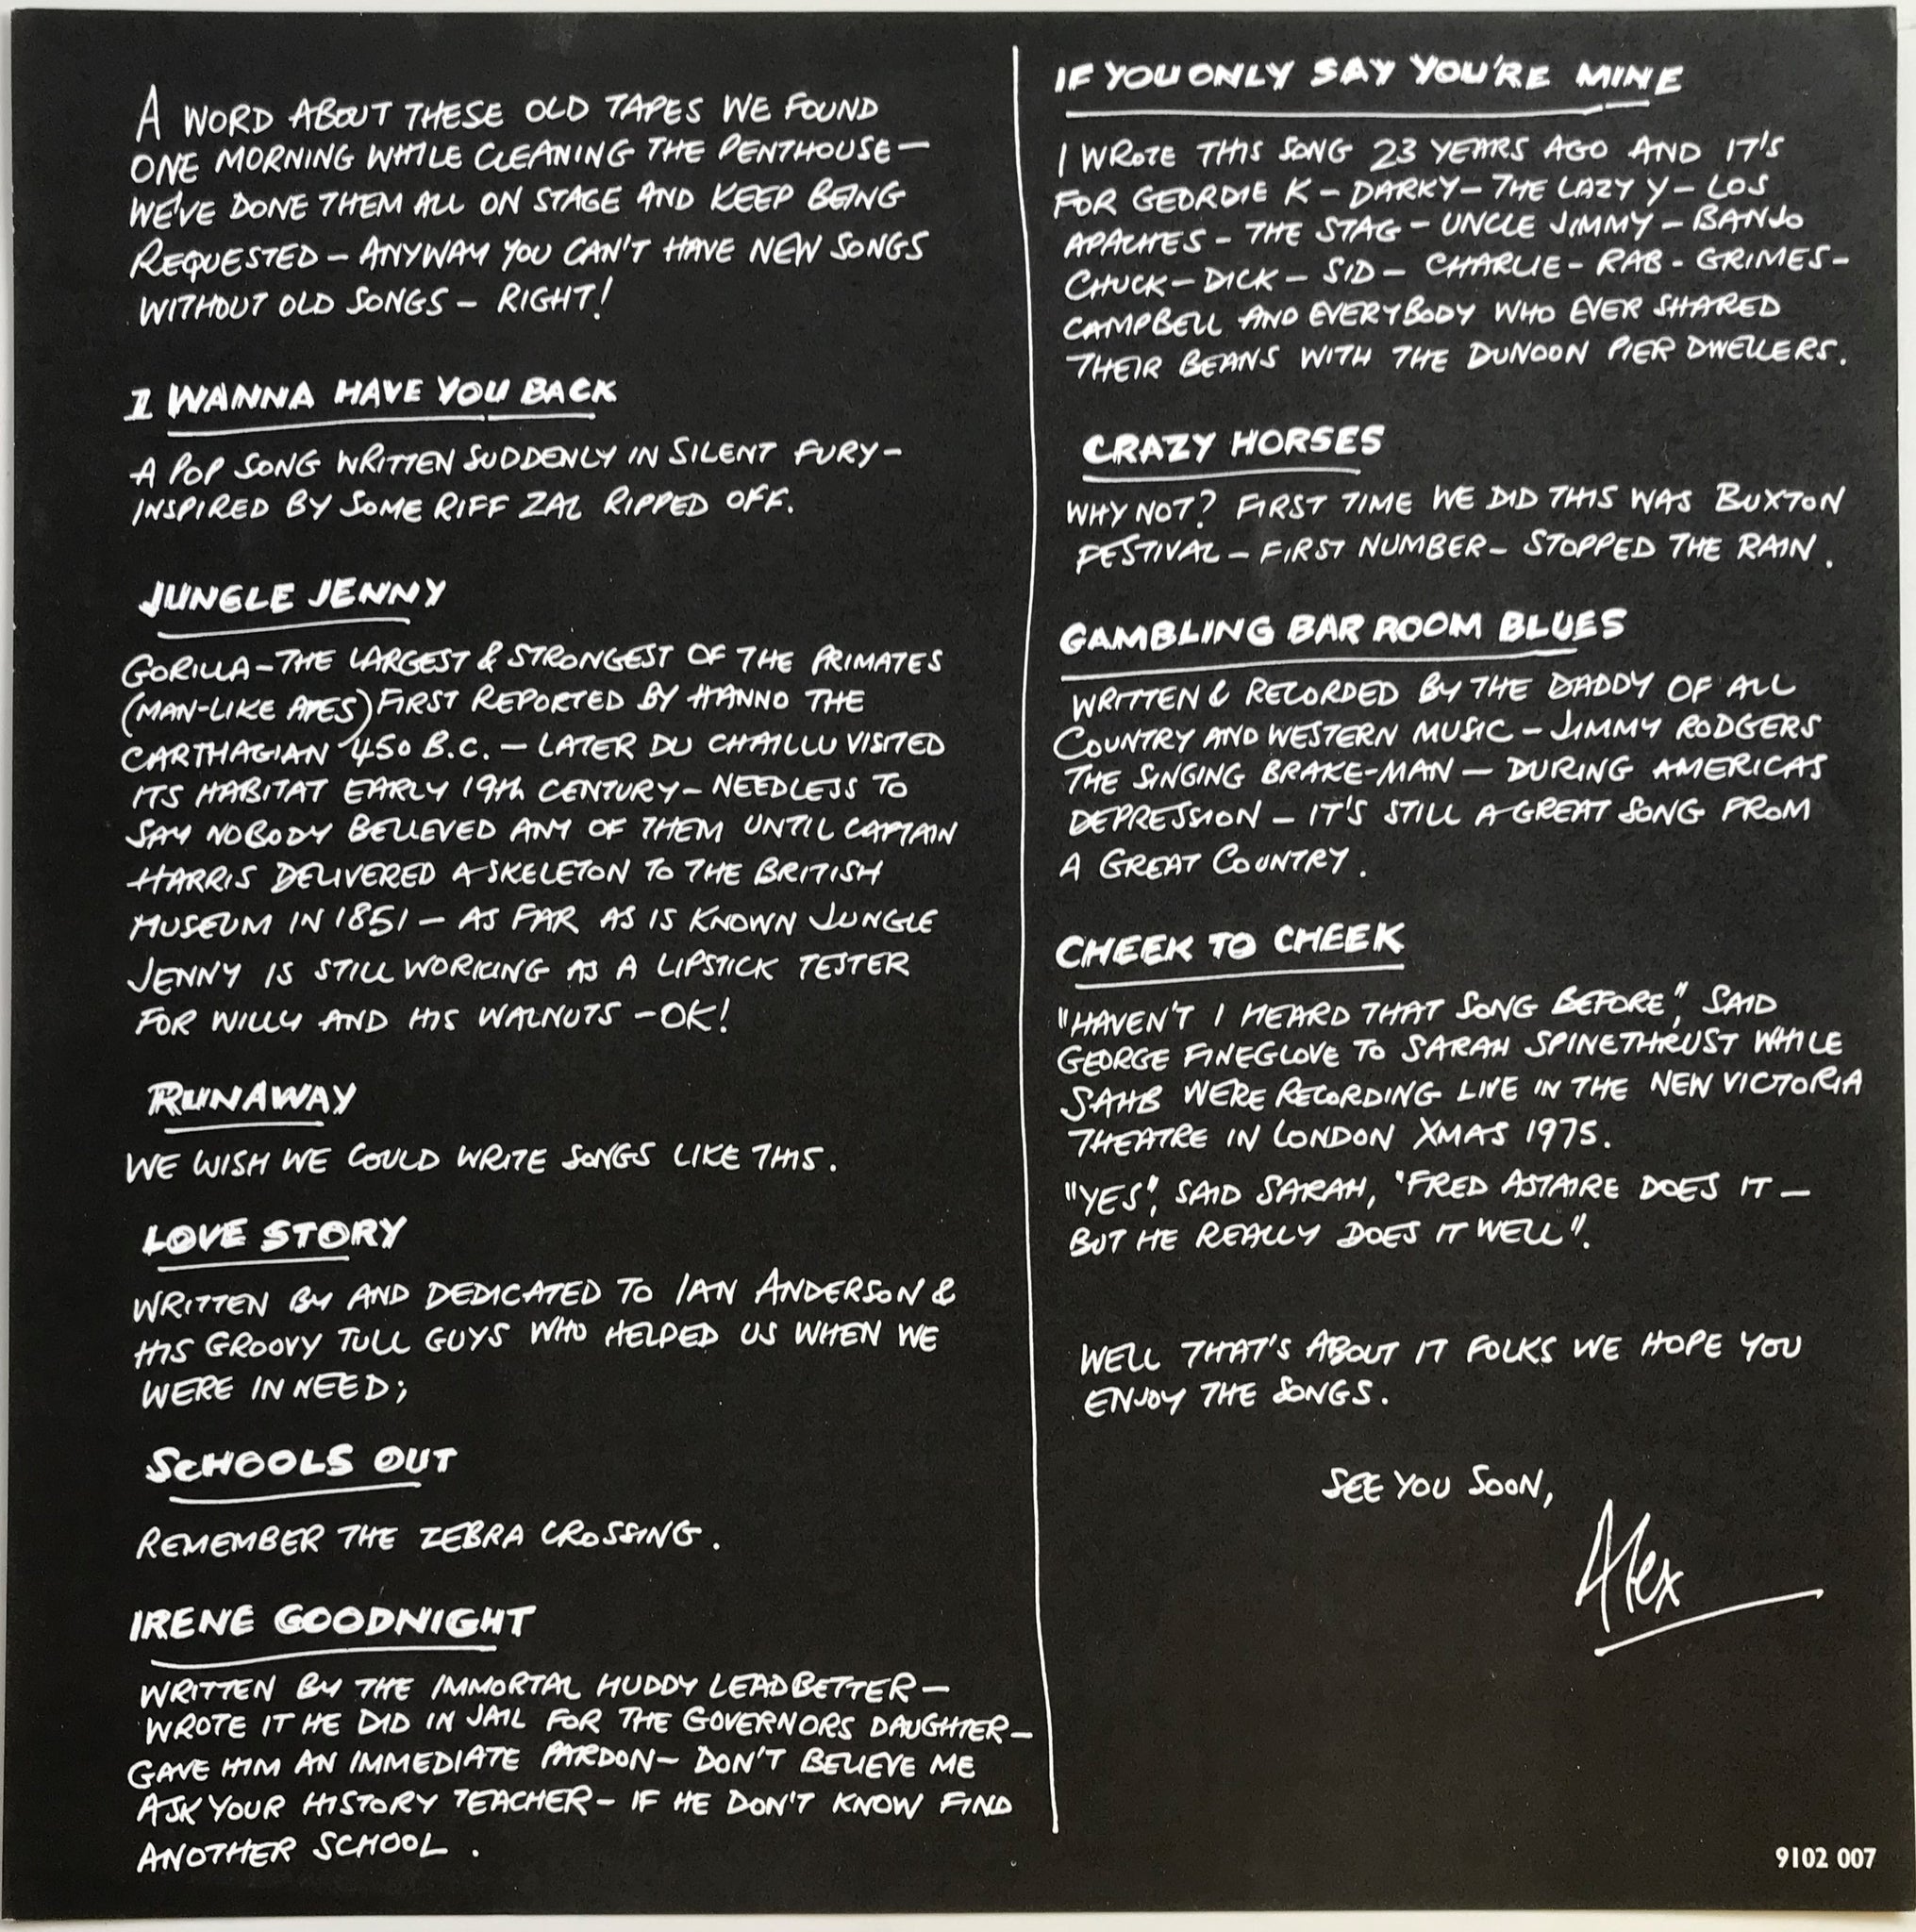 A WORD ABOUT THESE OLD TAPES WE FOUND
ONE MORNING WHILE CLEANING THE PENTHOUSE—
WE'VE DONE THEM ALL ON STAGE AND KEEP BEING
REQUESTED – ANYWAY YOU CAN'T HAVE NEW SONGS
WITHOUT OLD SONGS – RIGHT!
I WANNA HAVE YOU BACK
A POP SONG WRITTEN SUDDENLY IN SILENT FURY –
INSPIRED BY SOME RIFF ZAL RIPPED OFF.
JUNGLE JENNY
GORILLA – THE LARGEST & STRONGEST OF THE PRIMATES
(MAN-LIKE APES) FIRST REPORTED BY HANNO THE
CARTHAGIAN 450 B.C. – LATER DU CHAILLU VISITED
ITS HABITAT EARLY 19th CENTURY – NEEDLESS TO
SAY NOBODY BELIEVED ANY OF THEM UNTIL CAPTAIN
HARRIS DELIVERED A SKELETON TO THE BRITISH
MUSEUM IN 1851 – AS FAR AS IS KNOWN JUNGLE
JENNY IS STILL WORKING AS A LIPSTICK TESTER
FOR WILLY AND HIS WALNUTS – OK!
RUNAWAY
WE WISH WE COULD WRITE SONGS LIKE THIS.
LOVE STORY
WRITTEN BY AND DEDICATED TO IAN ANDERSON &
HIS GROOVY TULL GUYS WHO HELPED US WHEN WE
WERE IN NEED;
SCHOOLS OUT
REMEMBER THE ZEBRA CROSSING.
IRENE GOODNIGHT
WRITTEN BY THE IMMORTAL HUDDY LEADBETTER –
WROTE IT HE DID IN JAIL FOR THE GOVERNORS DAUGHTER –
GAVE HIM AN IMMEDIATE PARDON – DON'T BELIEVE ME
ASK YOUR HISTORY TEACHER – IF HE DON'T KNOW FIND
ANOTHER SCHOOL.
IF YOU ONLY SAY YOU'RE MINE
I WROTE THIS SONG 23 YEARS AGO AND IT'S
FOR GEORDIE K – DARKY – THE LAZY Y – LOS
APACHES – THE STAG – UNCLE JIMMY – BANJO
CHUCK – DICK – SID – CHARLIE – RAB – GRIMES –
CAMPBELL AND EVERYBODY WHO EVER SHARED
THEIR BEANS WITH THE DUNOON PIER DWELLERS.
CRAZY HORSES
WHY NOT? FIRST TIME WE DID THIS WAS BUXTON
FESTIVAL – FIRST NUMBER – STOPPED THE RAIN.
GAMBLING BAR ROOM BLUES
WRITTEN & RECORDED BY THE DADDY OF ALL
COUNTRY AND WESTERN MUSIC – JIMMY RODGERS
THE SINGING BRAKE-MAN – DURING AMERICAS
DEPRESSION – IT'S STILL A GREAT SONG FROM
A GREAT COUNTRY.
CHEEK TO CHEEK
"HAVEN'T I HEARD THAT SONG BEFORE", SAID
GEORGE FINEGLOVE TO SARAH SPINETHRUST WHILE
SAHB WERE RECORDING LIVE IN THE NEW VICTORIA
THEATRE IN LONDON XMAS 1975.
"YES", SAID SARAH, "FRED ASTAIRE DOES IT –
BUT HE REALLY DOES IT WELL".
WELL THAT'S ABOUT IT FOLKS WE HOPE YOU
ENJOY THE SONGS.
SEE YOU SOON,
Alex
9102 007